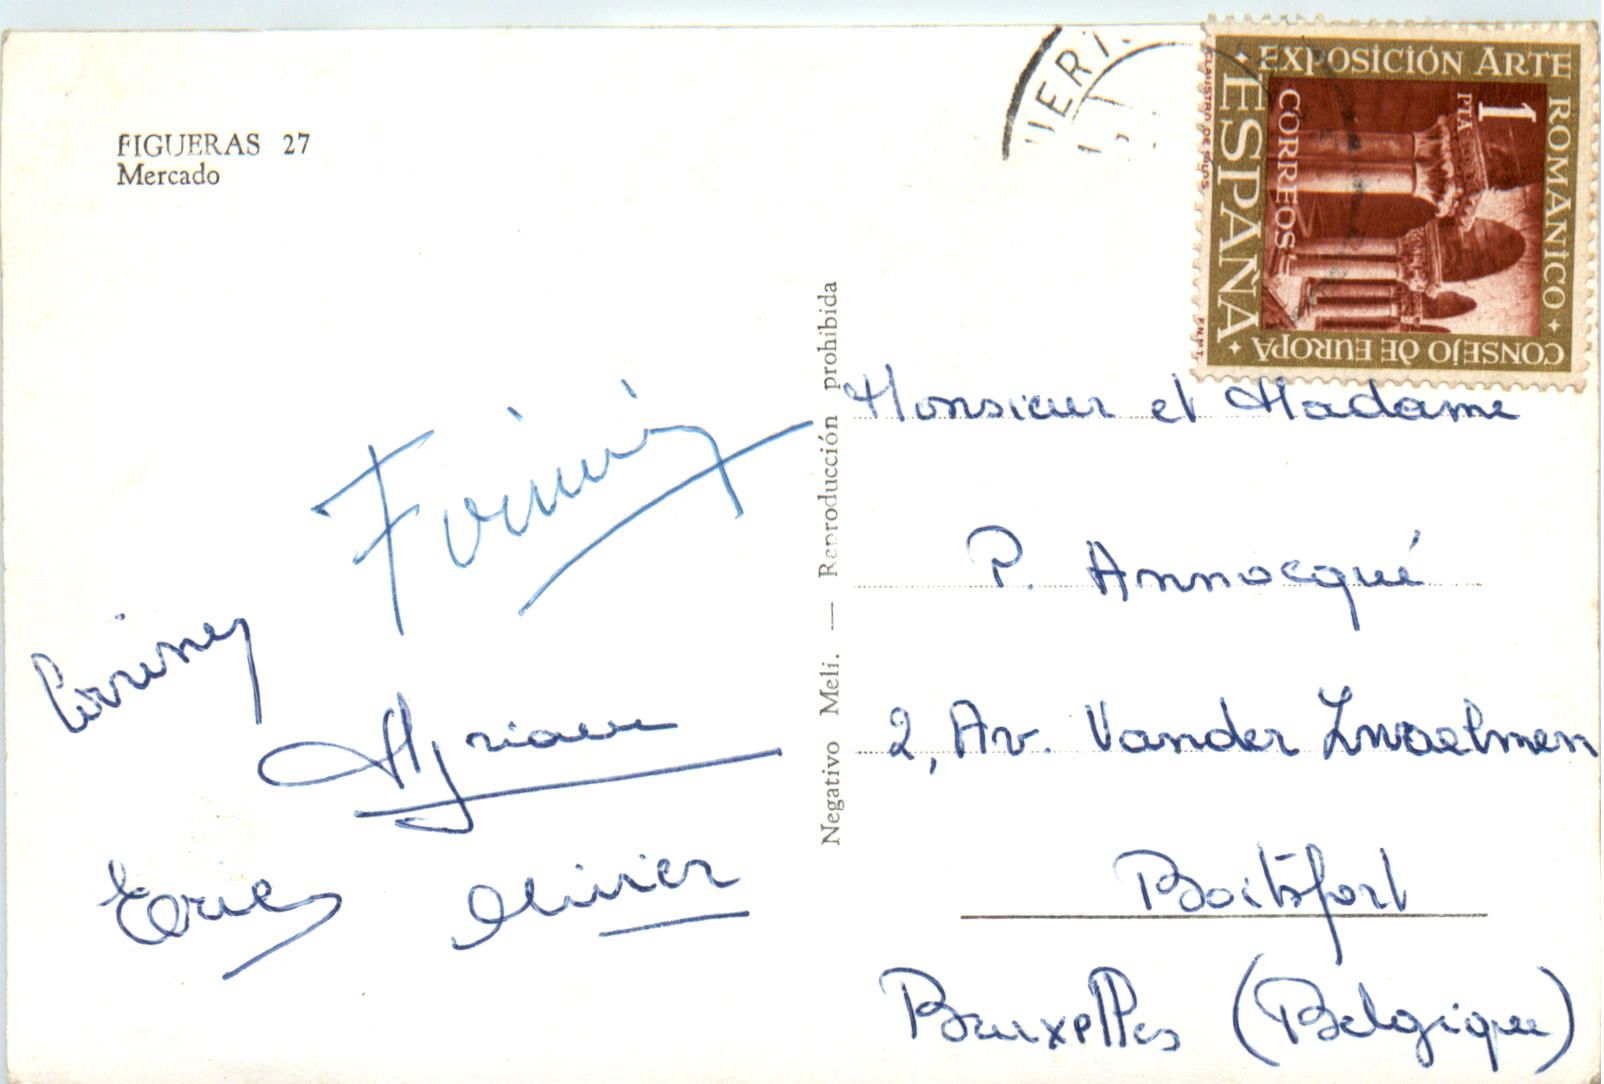 FIGUERAS 27
Mercado
EXPOSICIÓN ARTE
ROMÁNICO
CONSEJO DE EUROPA
ESPAÑA
CORREOS
1
PTA
CLAUSTRO DE SILOS
Negativo Meli. — Reproducción prohibida
Eric Olivier
Monsieur et Madame
P. Annocqué
2, Av. Vander Swaelmen
Boitsfort
Bruxelles (Belgique)